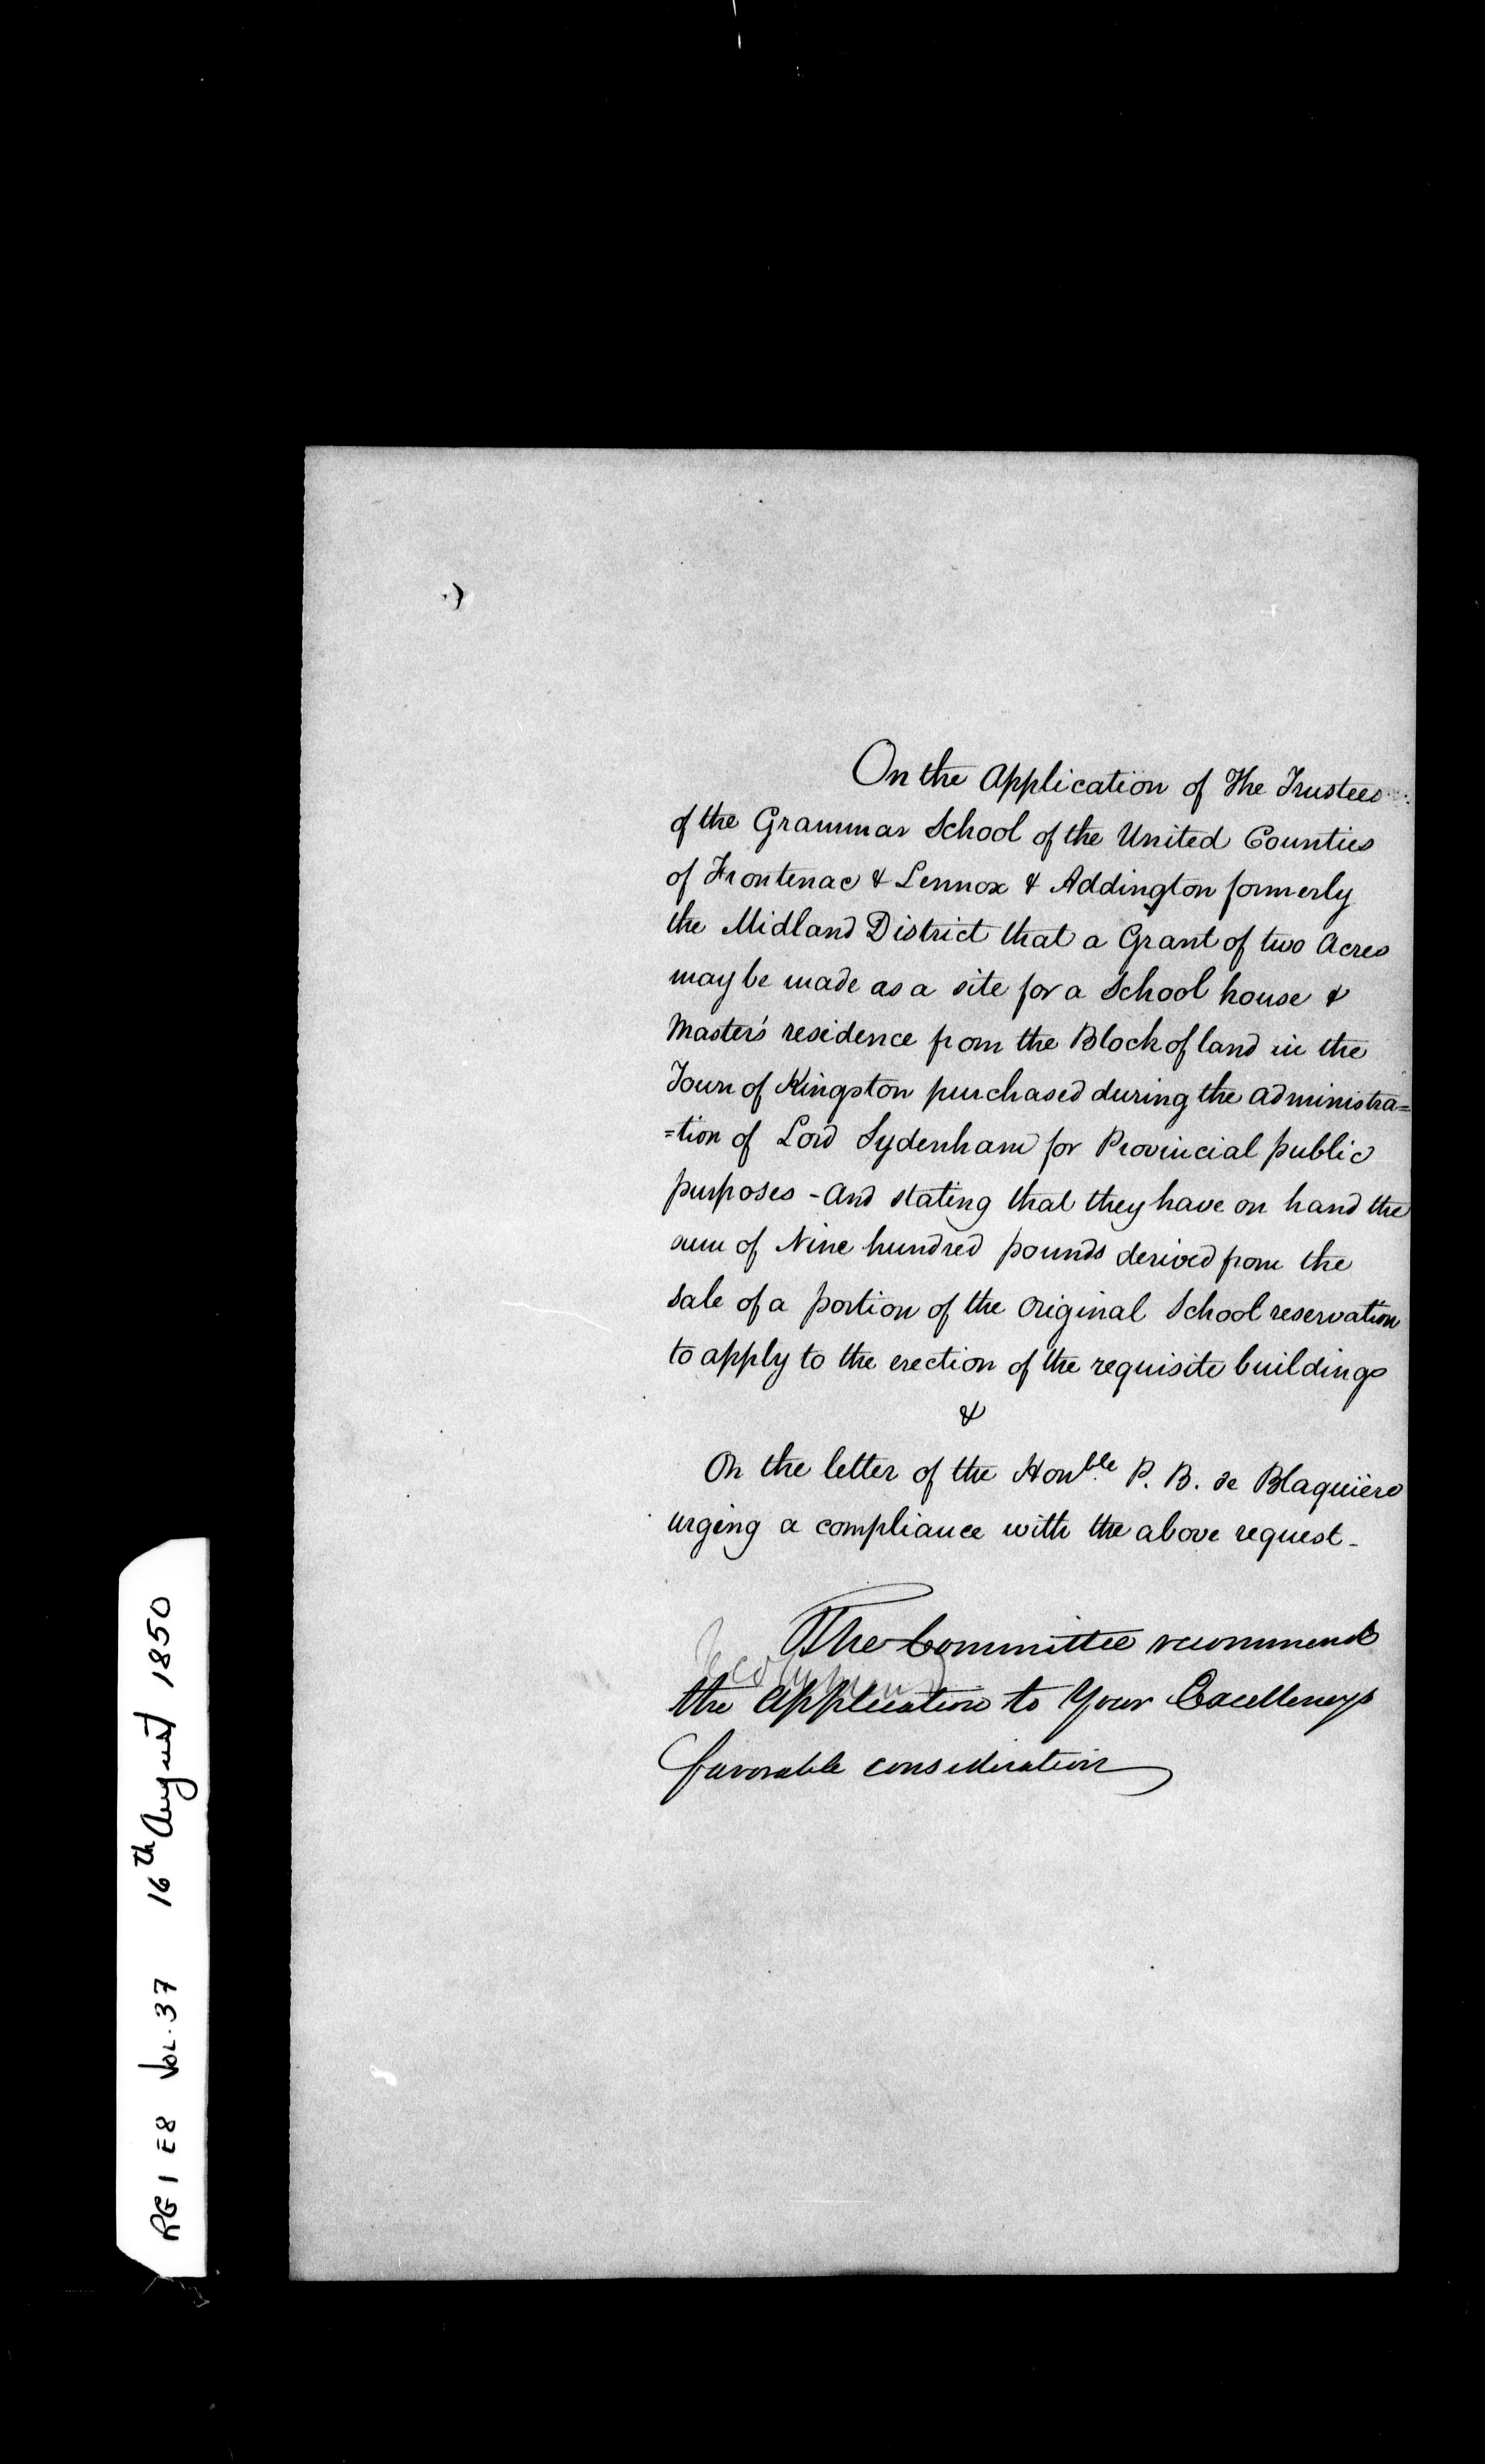 On the Application of The Trustees
of the Grammar School of the United Counties
of Frontenac & Lennox & Addington formerly
the Midland District that a Grant of two Acres
may be made as a site for a School house &
Master's residence from the Block of land in the
Town of Kingston purchased during the administra=
=tion of Lord Sydenham for Provincial public
purposes - And stating that they have on hand the
sum of Nine hundred pounds derived from the
Sale of a portion of the original School reservation
to apply to the erection of the requisite buildings
&
On the letter of the Honble P. B. de Blaquière
urging a compliance with the above request -
The Committee recommend
the Application to Your Excellencys
favorable consideration
recommend
RG 1 E8 Vol. 37 16th August 1850